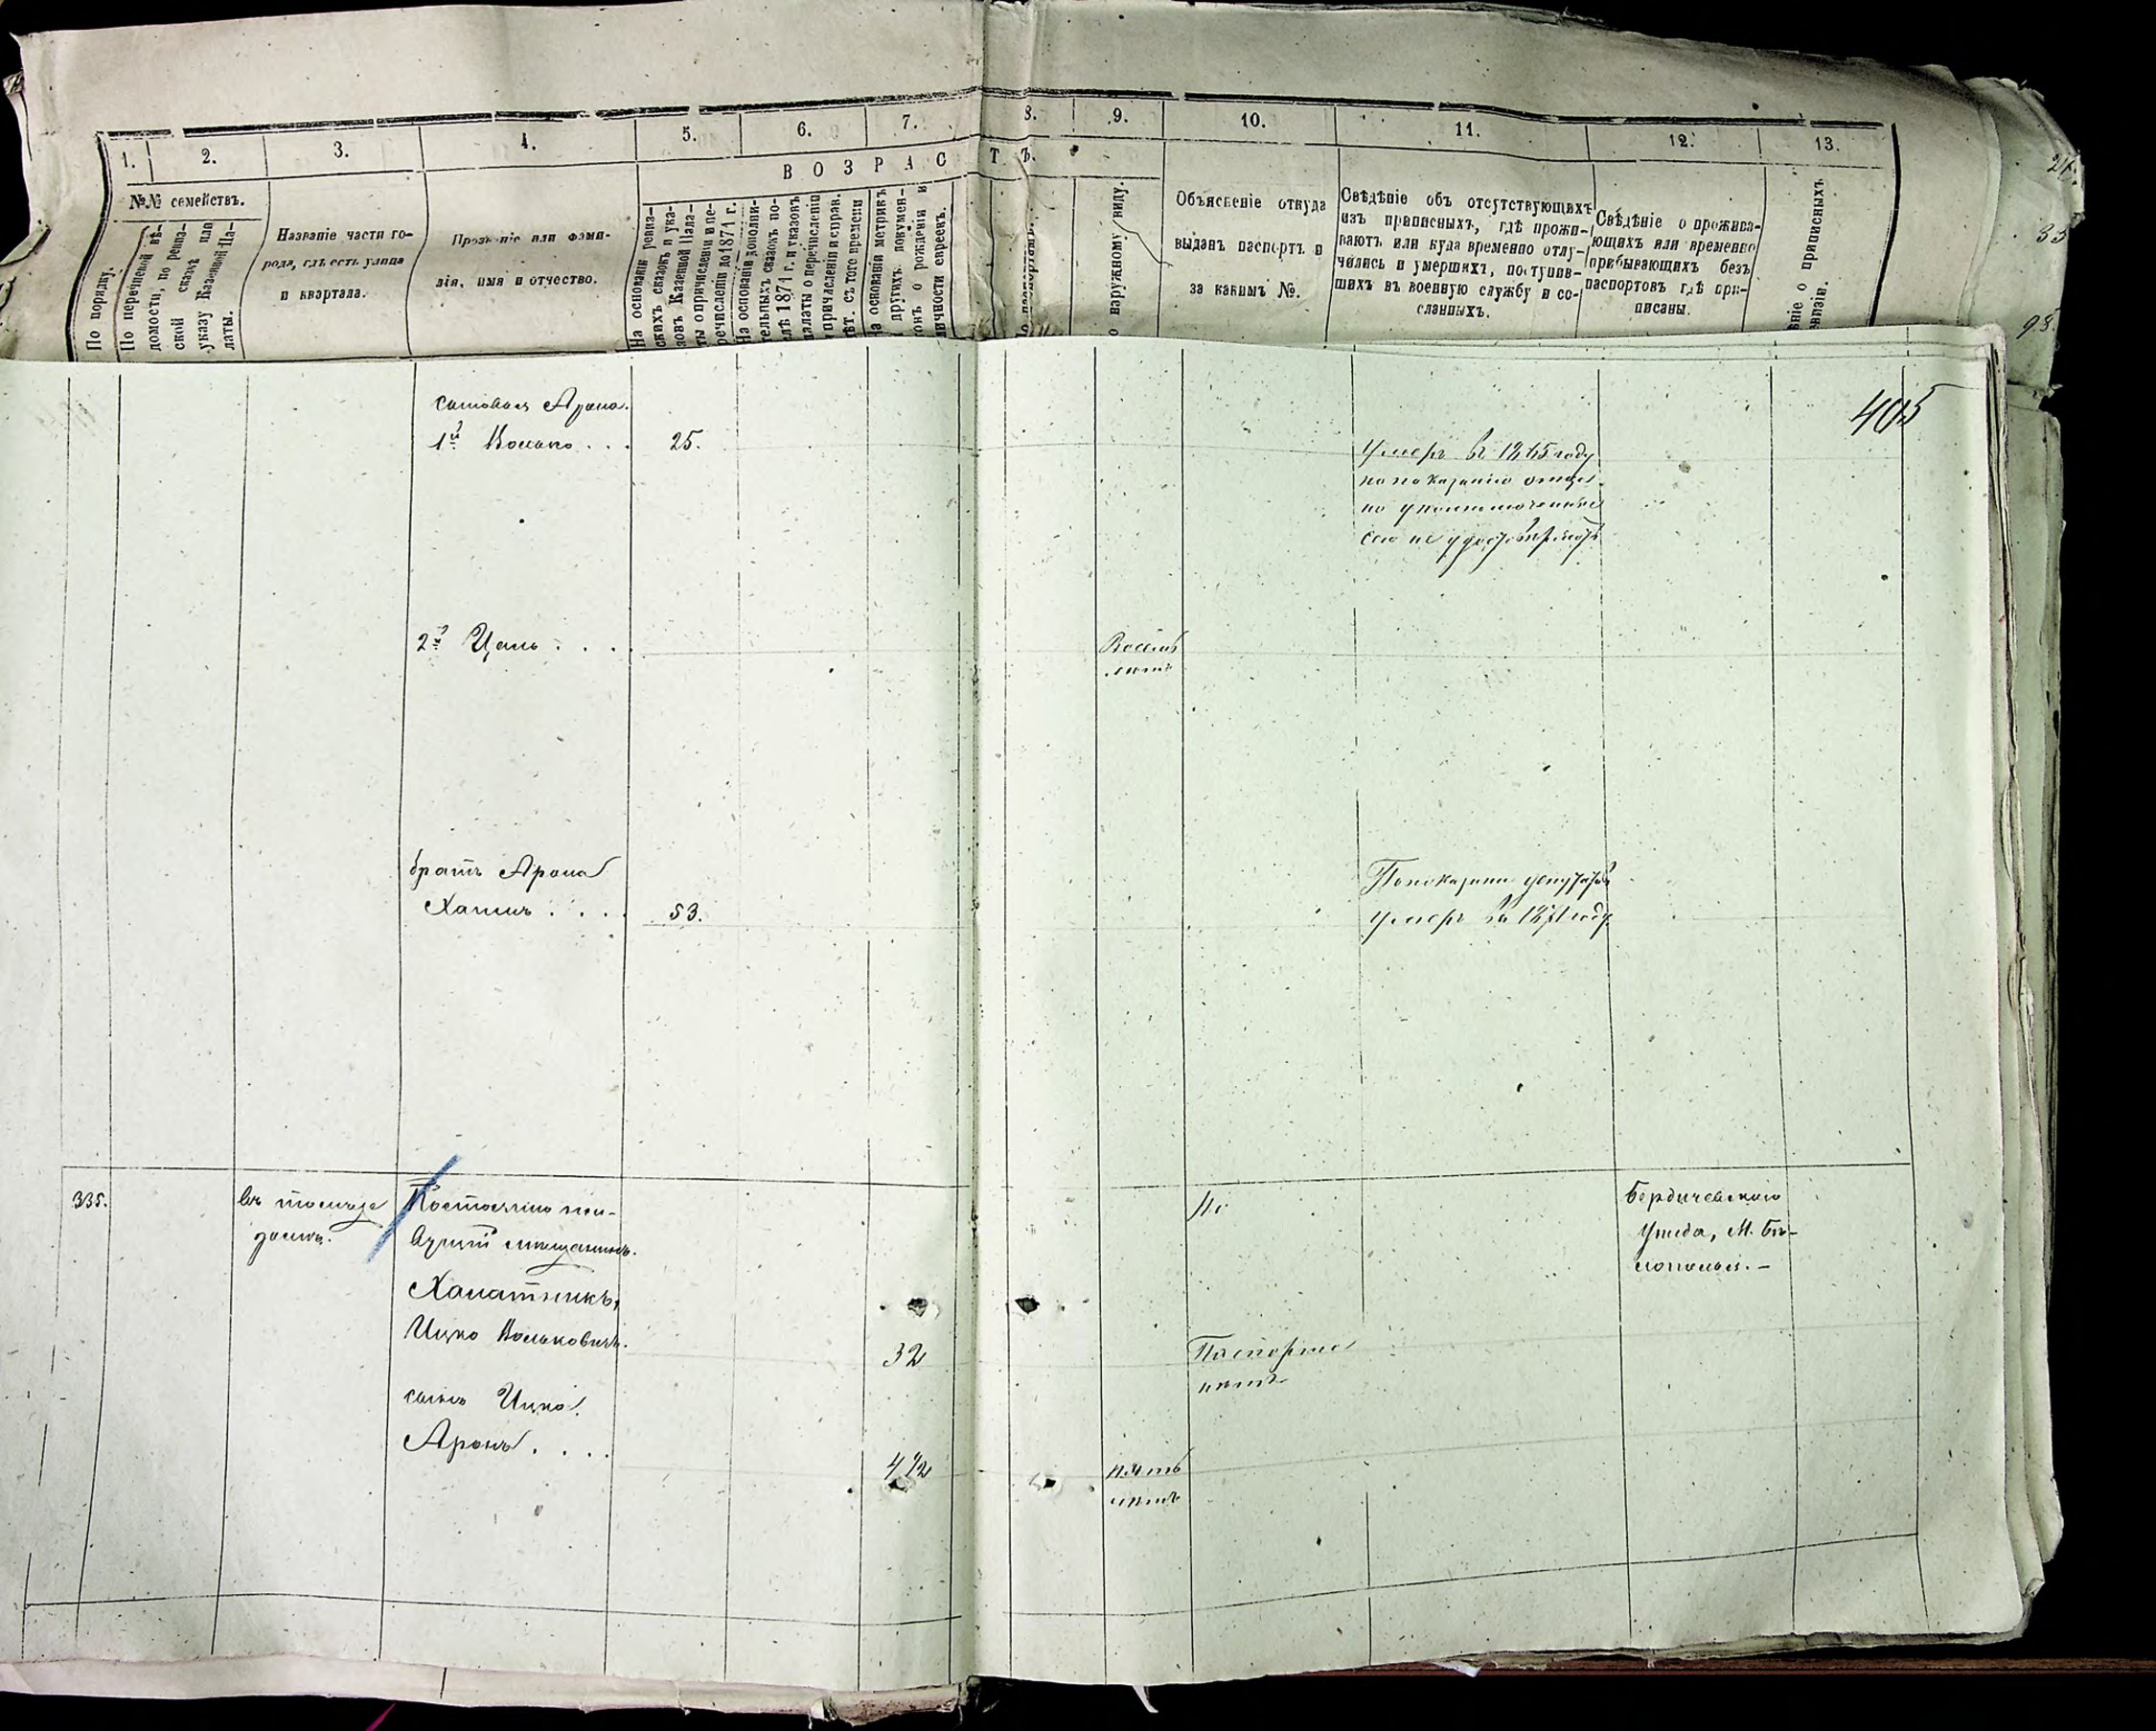 1. 2. 3. 4. 5. 6. 7. 8. 9. 10. 11. 12. 13.
ВОЗРАСТЪ.
№№ семействъ.
По порядку.
По перечневой вѣ-
домости, по ревиз-
ской сказкѣ или
указу Казенной Па-
латы.
Названіе части го-
рода, гдѣ есть улица
и квартала.
Прозваніе или фами-
лія, имя и отчество.
На основаніи ревиз-
скихъ сказокъ и ука-
зовъ Казенной Пала-
ты о причисленіи и пе-
речисленіи до 1874 г.
На основаніи дополни-
тельныхъ сказокъ по-
слѣ 1874 г. и указовъ
палаты о перечисленіи
и причисленіи и справ.
лѣт. съ того времени
На основаніи метрикъ
и другихъ докумен-
о рожденіи и
личности евреевъ.
наружному виду.
Объясненіе откуда
выданъ паспортъ и
за какимъ №.
Свѣдѣніе объ отсутствующихъ
изъ приписныхъ, гдѣ прожи-
ваютъ или куда временно отлу-
чились и умершихъ, поступив-
шихъ въ военную службу и со-
сланныхъ.
Свѣдѣніе о прожива-
ющихъ или временно
прибывающихъ безъ
паспортовъ гдѣ при-
писаны.
о приписныхъ
405
сыновья Арона.
1й Волько . . . 25.
Умеръ въ 1865 году
по показанію отца
но уполномоченные
сего не удостовѣряютъ
2й Цаль . . .
Восемь
лѣтъ
братъ Арона
Хаимъ . . . 53.
По показанію депутатовъ
умеръ въ 1871 году
335.
въ томъ же
домѣ.
Постоянно жи-
вущій мѣщанинъ.
Халатникъ,
Ицко Вольковичъ. 32
Паспорта
нѣтъ
Бердичевскаго
Уѣзда, М. Бѣ-
лополья. —
сынъ Ицка
Аронъ . . . . 4 1/2
пять
лѣтъ